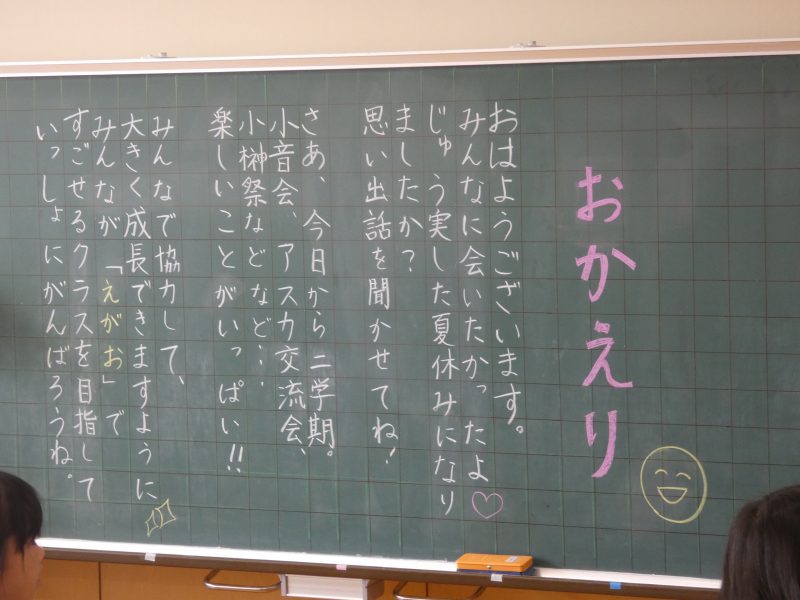 おかえり
おはようございます。
みんなに会いたかったよ♡
じゅう実した夏休みになり
ましたか？
思い出話を聞かせてね！
さあ、今日から二学期。
小音会、アスカ交流会、
小榊祭などなど…。
楽しいことがいっぱい!!
みんなで協力して、
大きく成長できますように
みんなが「えがお」で
すごせるクラスを目指して
いっしょにがんばろうね。